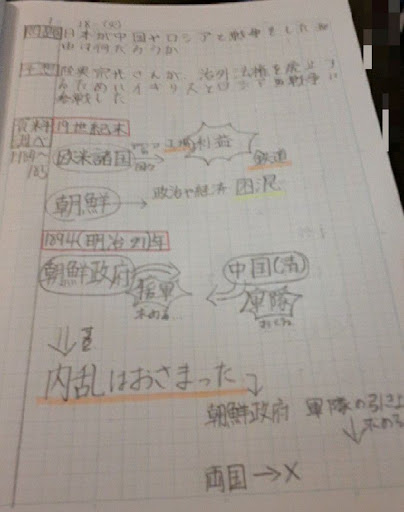 日本が中国やロシアと戦争をした理
由は何だろうか
予想
陸奥宗光さんが、治外法権を
るためにイギリスとロシアの戦争に
参戦した
資料調べ
19世紀末
欧米諸国
工場
利益
鉄道
朝鮮
政治や経済
困況
1894(明治27)年
朝鮮政府
援軍
求める…
中国(清)
軍隊
おくる
内乱はおさまった
朝鮮政府 軍隊の引きよ
求める
両国→×